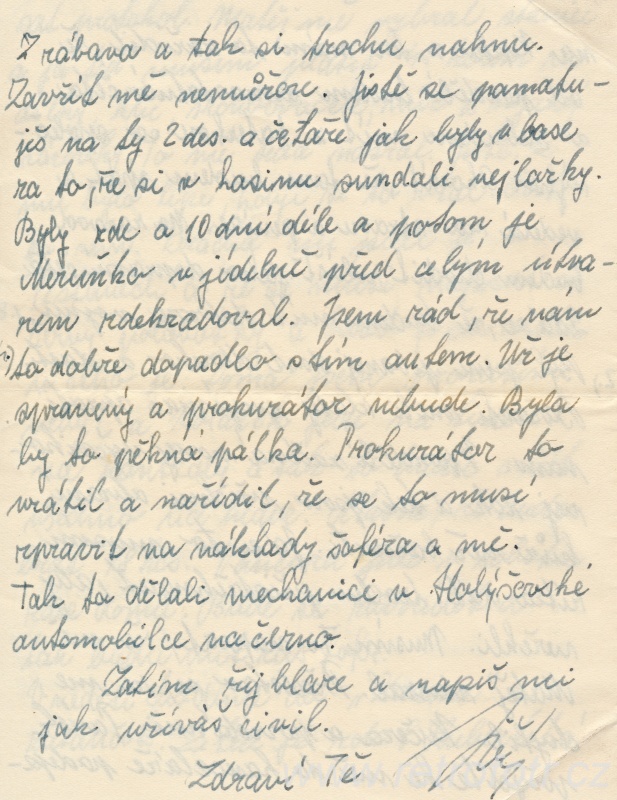 Zrábava a tak si trochu nahnu.
Zavřít mě nemůžou. Jistě se pamatu-
ješ na ty 2 des. a četaře jak byly v base
za to, že si v hasinu sundali nejlažky.
Byly zde a 10 dní déle a potom je
Meruňko v jídelně před celým útva-
rem zdehradoval. Jsem rád, že nám
to dobře dapadlo s tím autem. Už je
spravený a prokurátor nebude. Byla
by to pěkná pálka. Prokurátor to
vrátil a nařídil, že se to musí
zpravit na náklady šoféra a mě.
Tak to dělali mechanici v Holýšovské
automobilce načerno.
Zatím žij blaze a napiš mi
jak užíváš civil.
Zdraví Tě